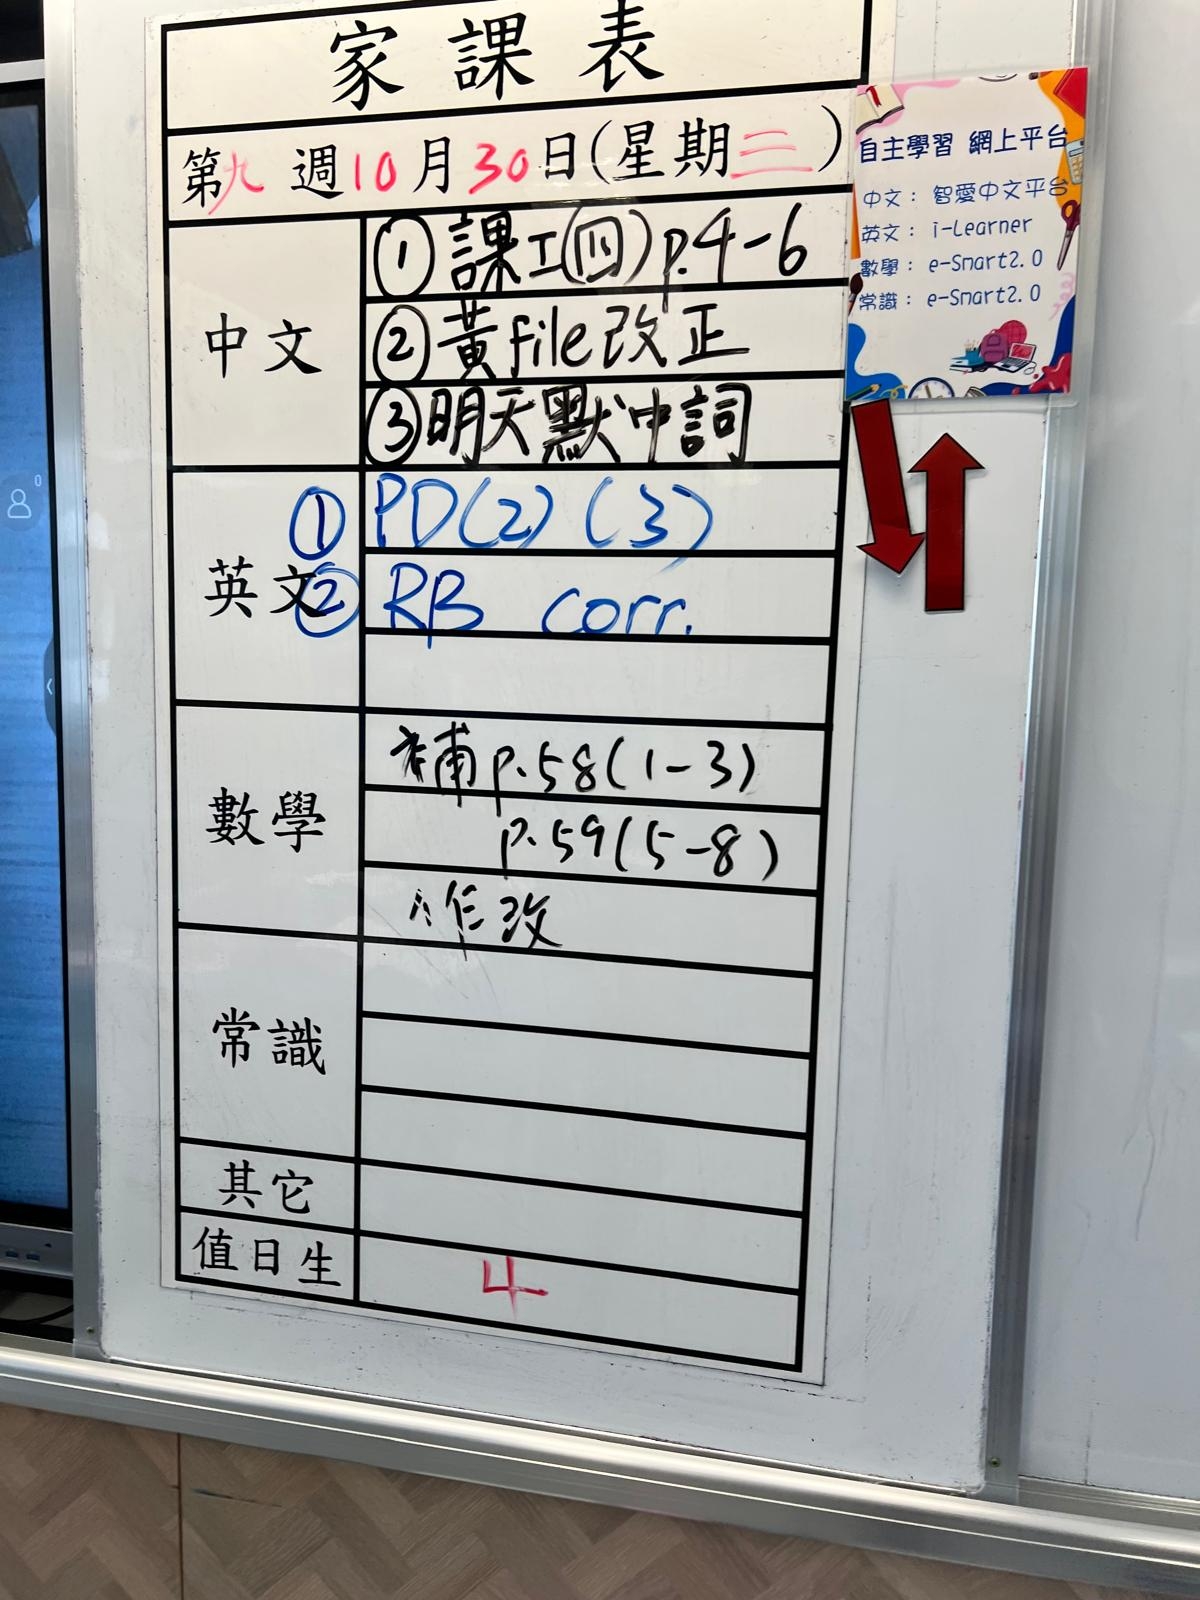 家課表
第九週10月30日(星期三)
中文
①課工(四)p.4-6
②黃file改正
③明天默中詞
英文
①PD(2)(3)
②RB corr.
數學
補p.58(1-3)
p.59(5-8)
作改
常識
其它
值日生
4
自主學習 網上平台
中文：智愛中文平台
英文：i-Learner
數學：e-Smart2.0
常識：e-Smart2.0
0